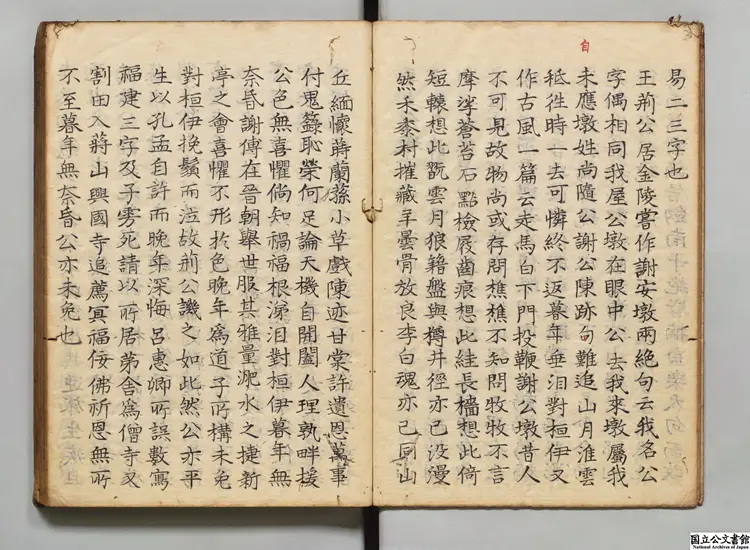 自
易二三字也
王荊公居金陵嘗作謝安墩兩絶句云我名公
字偶相同我屋公墩在眼中公去我來墩屬我
未應墩姓尚隨公謝公陳跡句難追山月淮雲
秪徃時一去可憐終不返暮年垂泪對桓伊又
作古風一篇云走馬白下門投鞭謝公墩昔人
不可見故物尚或存問樵樵不知問牧牧不言
摩挲蒼苔石點檢屐齒痕想此絓長檣想此倚
短轅想此翫雲月狼籍盤與樽井徑亦已没漫
然禾黍村摧藏羊曇骨放良李白魂亦已同山
丘緬懷蒔蘭蓀小草戲陳迹甘棠許遺恩萬事
付鬼籙恥榮何足論天機自開闔人理孰畔援
公色無喜懼倘知禍福根涕泪對桓伊暮年無
奈昏謝傅在晉朝舉世服其雅量淝水之捷新
亭之會喜懼不形於色晚年為道子所構未免
對桓伊挽鬚而泣故荊公譏之如此然公亦平
生以孔孟自許而晚年深悔呂惠卿所誤數寫
福建三字及子雱死請以所居苐舍為僧寺又
割田入蔣山興國寺追薦冥福佞佛祈恩無所
不至暮年無奈昏公亦未免也
国立公文書館
National Archives of Japan